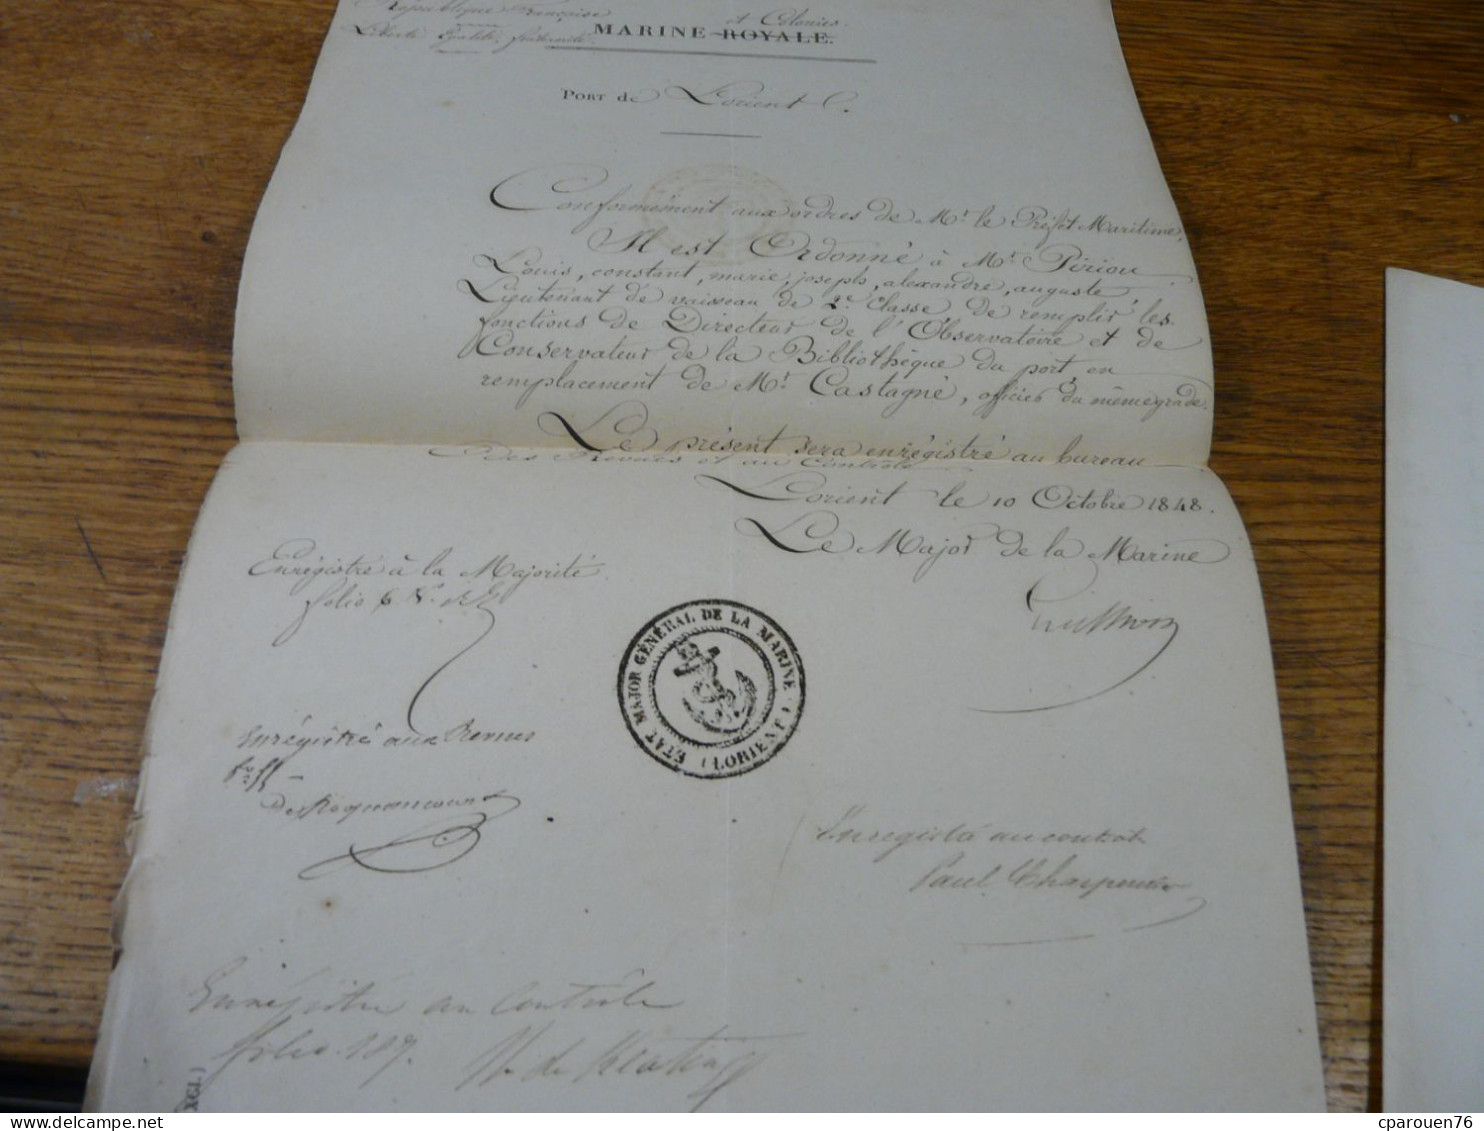 République Française
Liberté, Égalité, fraternité.
et Colonies.
MARINE ROYALE.
PORT de Lorient
Conformément aux ordres de Mr. le Préfet Maritime,
Il est Ordonné à Mr. Piriou
Louis, constant, marie, joseph, alexandre, auguste
Lieutenant de vaisseau de 2e Classe de remplir les
fonctions de Directeur de l'Observatoire et de
Conservateur de la Bibliothèque du port, en
remplacement de Mr. Castagné, officier du même grade.
Le présent sera enrégistré au bureau
des Revues et au Contrôle
Lorient le 10 Octobre 1848.
Le Major de la Marine
Enrégistré à la Majorité
folio 6
ÉTAT MAJOR GÉNÉRAL DE LA MARINE
(LORIENT)
Enrégistré aux Revues
De Roquancourt
Enregistré au contrôle
Paul Charpentier
Enregistré au Contrôle
folio 187.
cparouen76